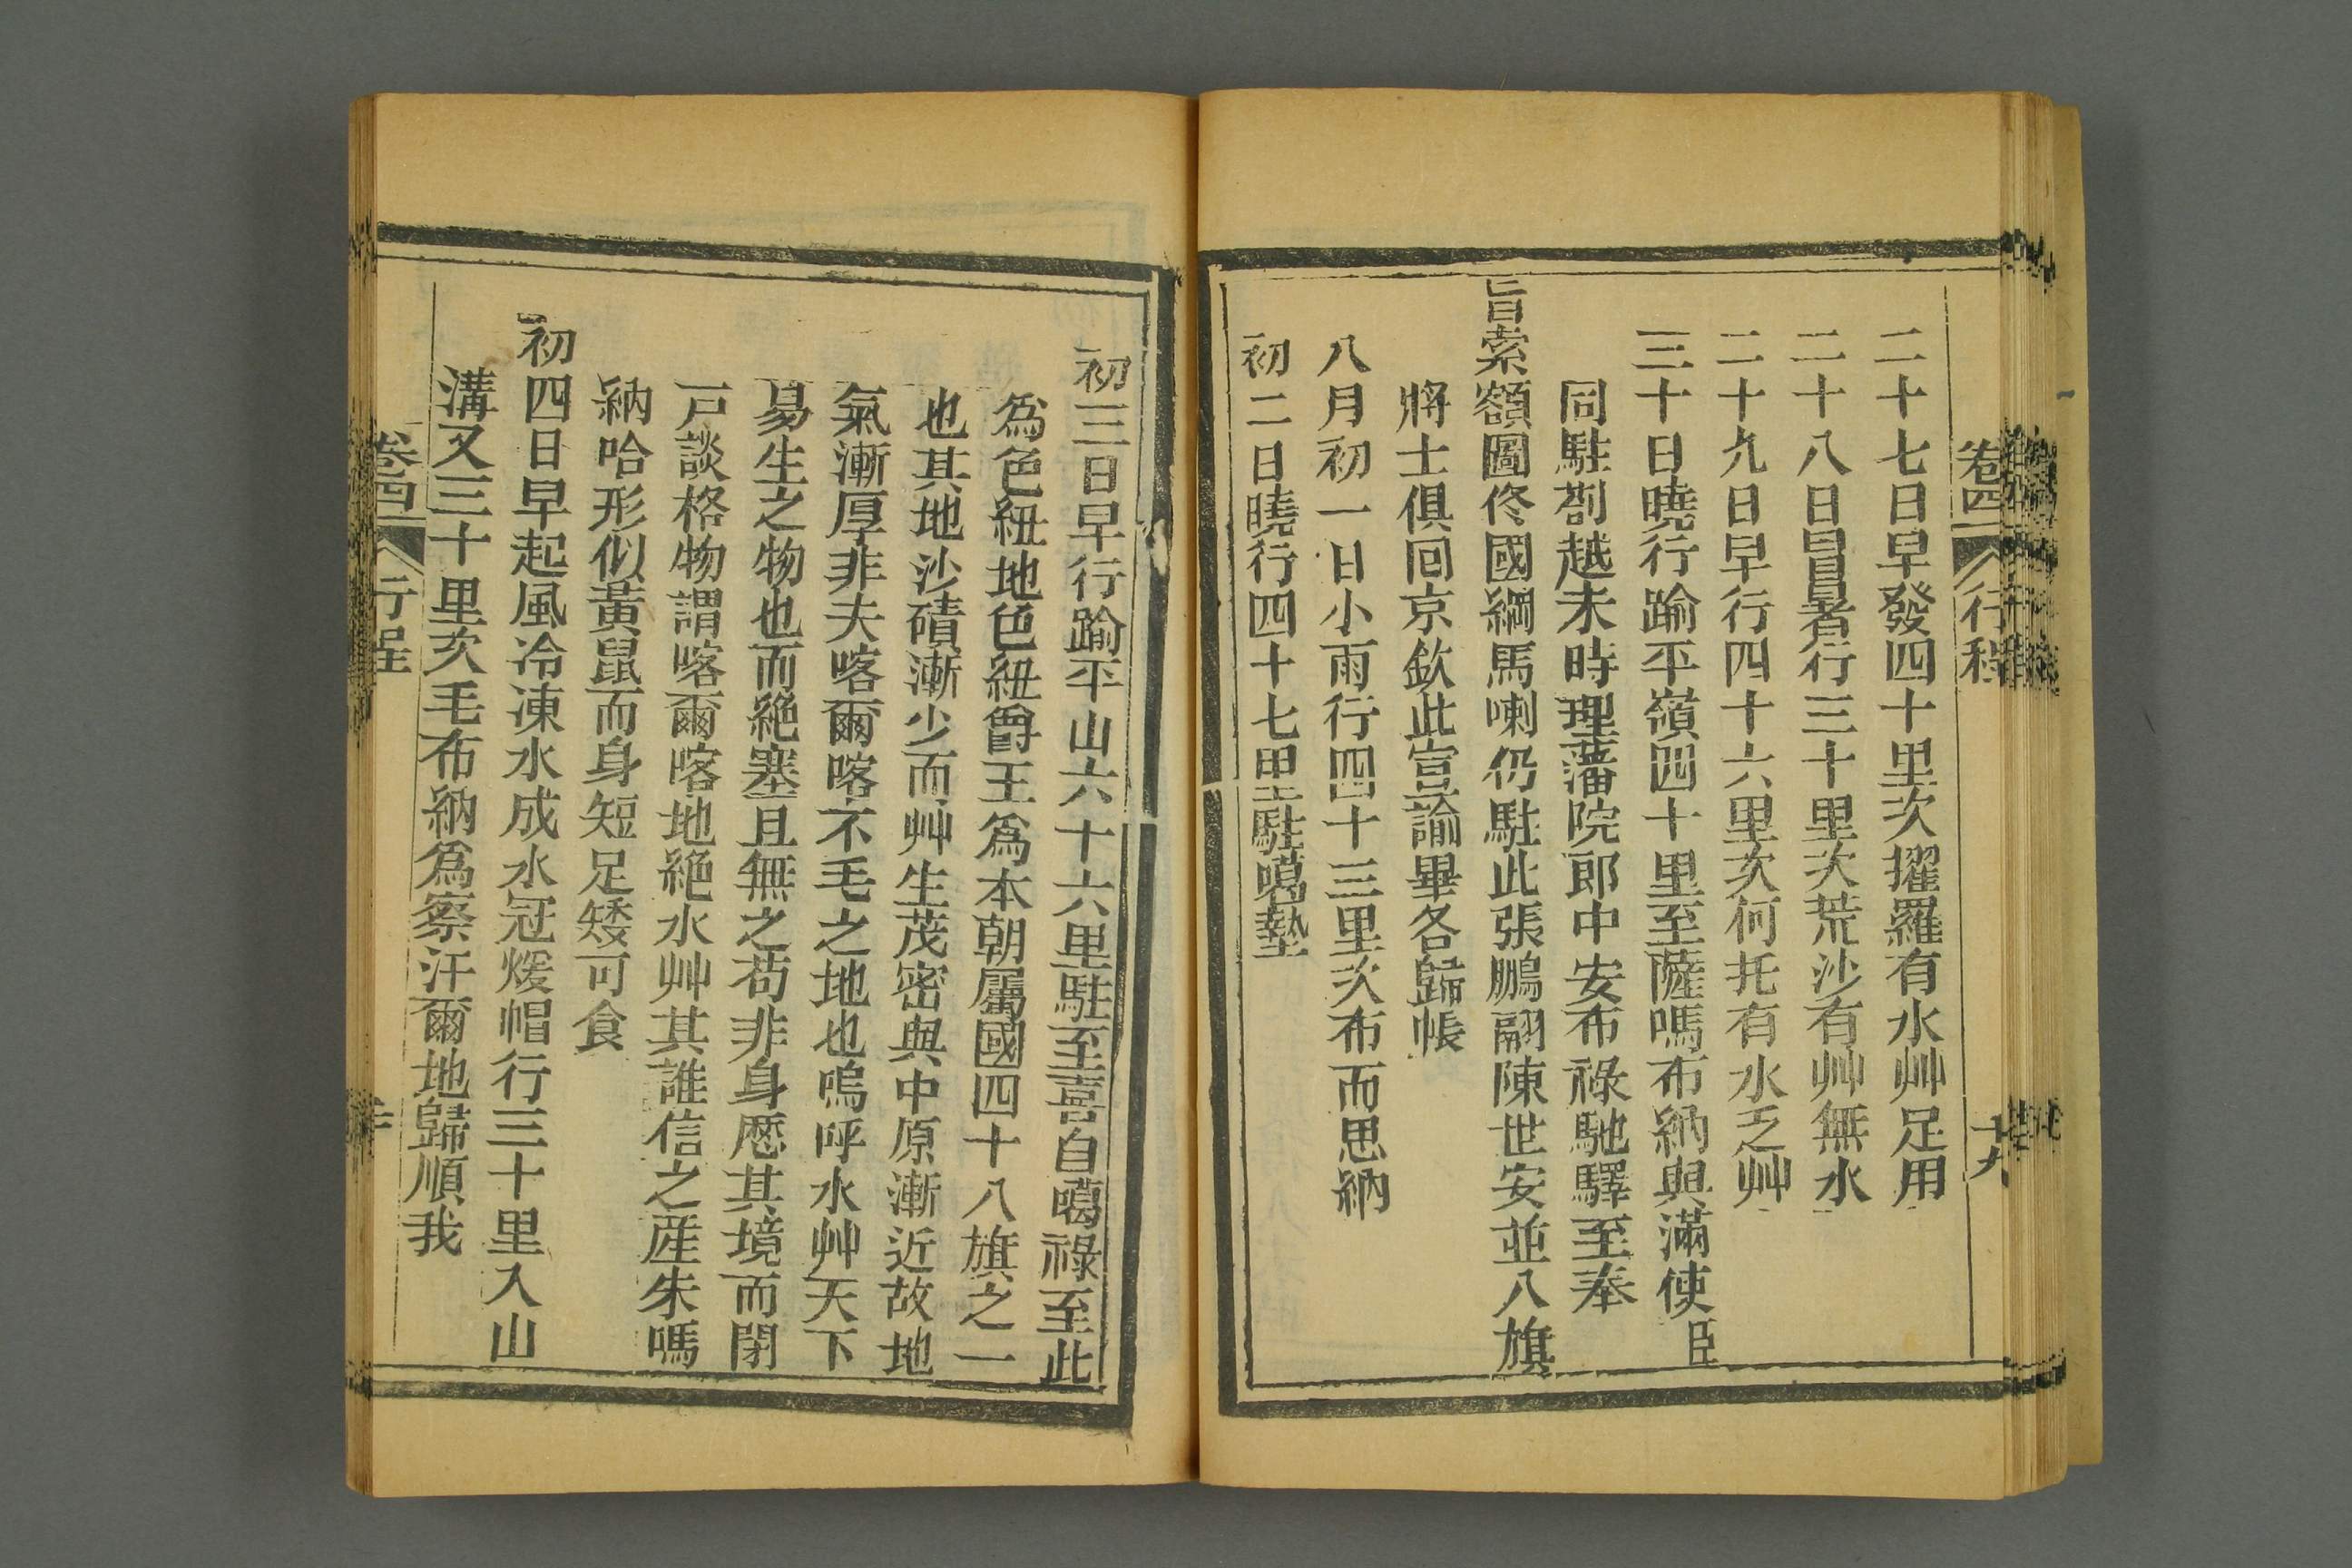 卷四 行程 十九
二十七日早發四十里次擢羅有水艸足用
二十八日冒暑行三十里次荒沙有艸無水
二十九日早行四十六里次何托有水乏艸
三十日曉行踰平嶺四十里至薩嗎布納與滿使臣
同駐劄越未時理藩院郎中安布祿馳驛至奉
旨索額圖佟國綱馬喇仍駐此張鵬翮陳世安並八旗
將士俱回京欽此宣諭畢各歸帳
八月初一日小雨行四十三里次布而思納
初二日曉行四十七里駐噶墊
初三日早行踰平山六十六里駐至喜自噶祿至此
爲色紐地色紐爵王爲本朝屬國四十八旗之一
也其地沙磧漸少而艸生茂密與中原漸近故地
氣漸厚非夫喀爾喀不毛之地也嗚呼水艸天下
易生之物也而絶塞且無之苟非身歷其境而閉
戸談格物謂喀爾喀地絶水艸其誰信之産朱嗎
納哈形似黃鼠而身短足矮可食
初四日早起風冷凍水成氷冠煖帽行三十里入山
溝又三十里次毛布納爲察汗爾地歸順我
卷四 行程